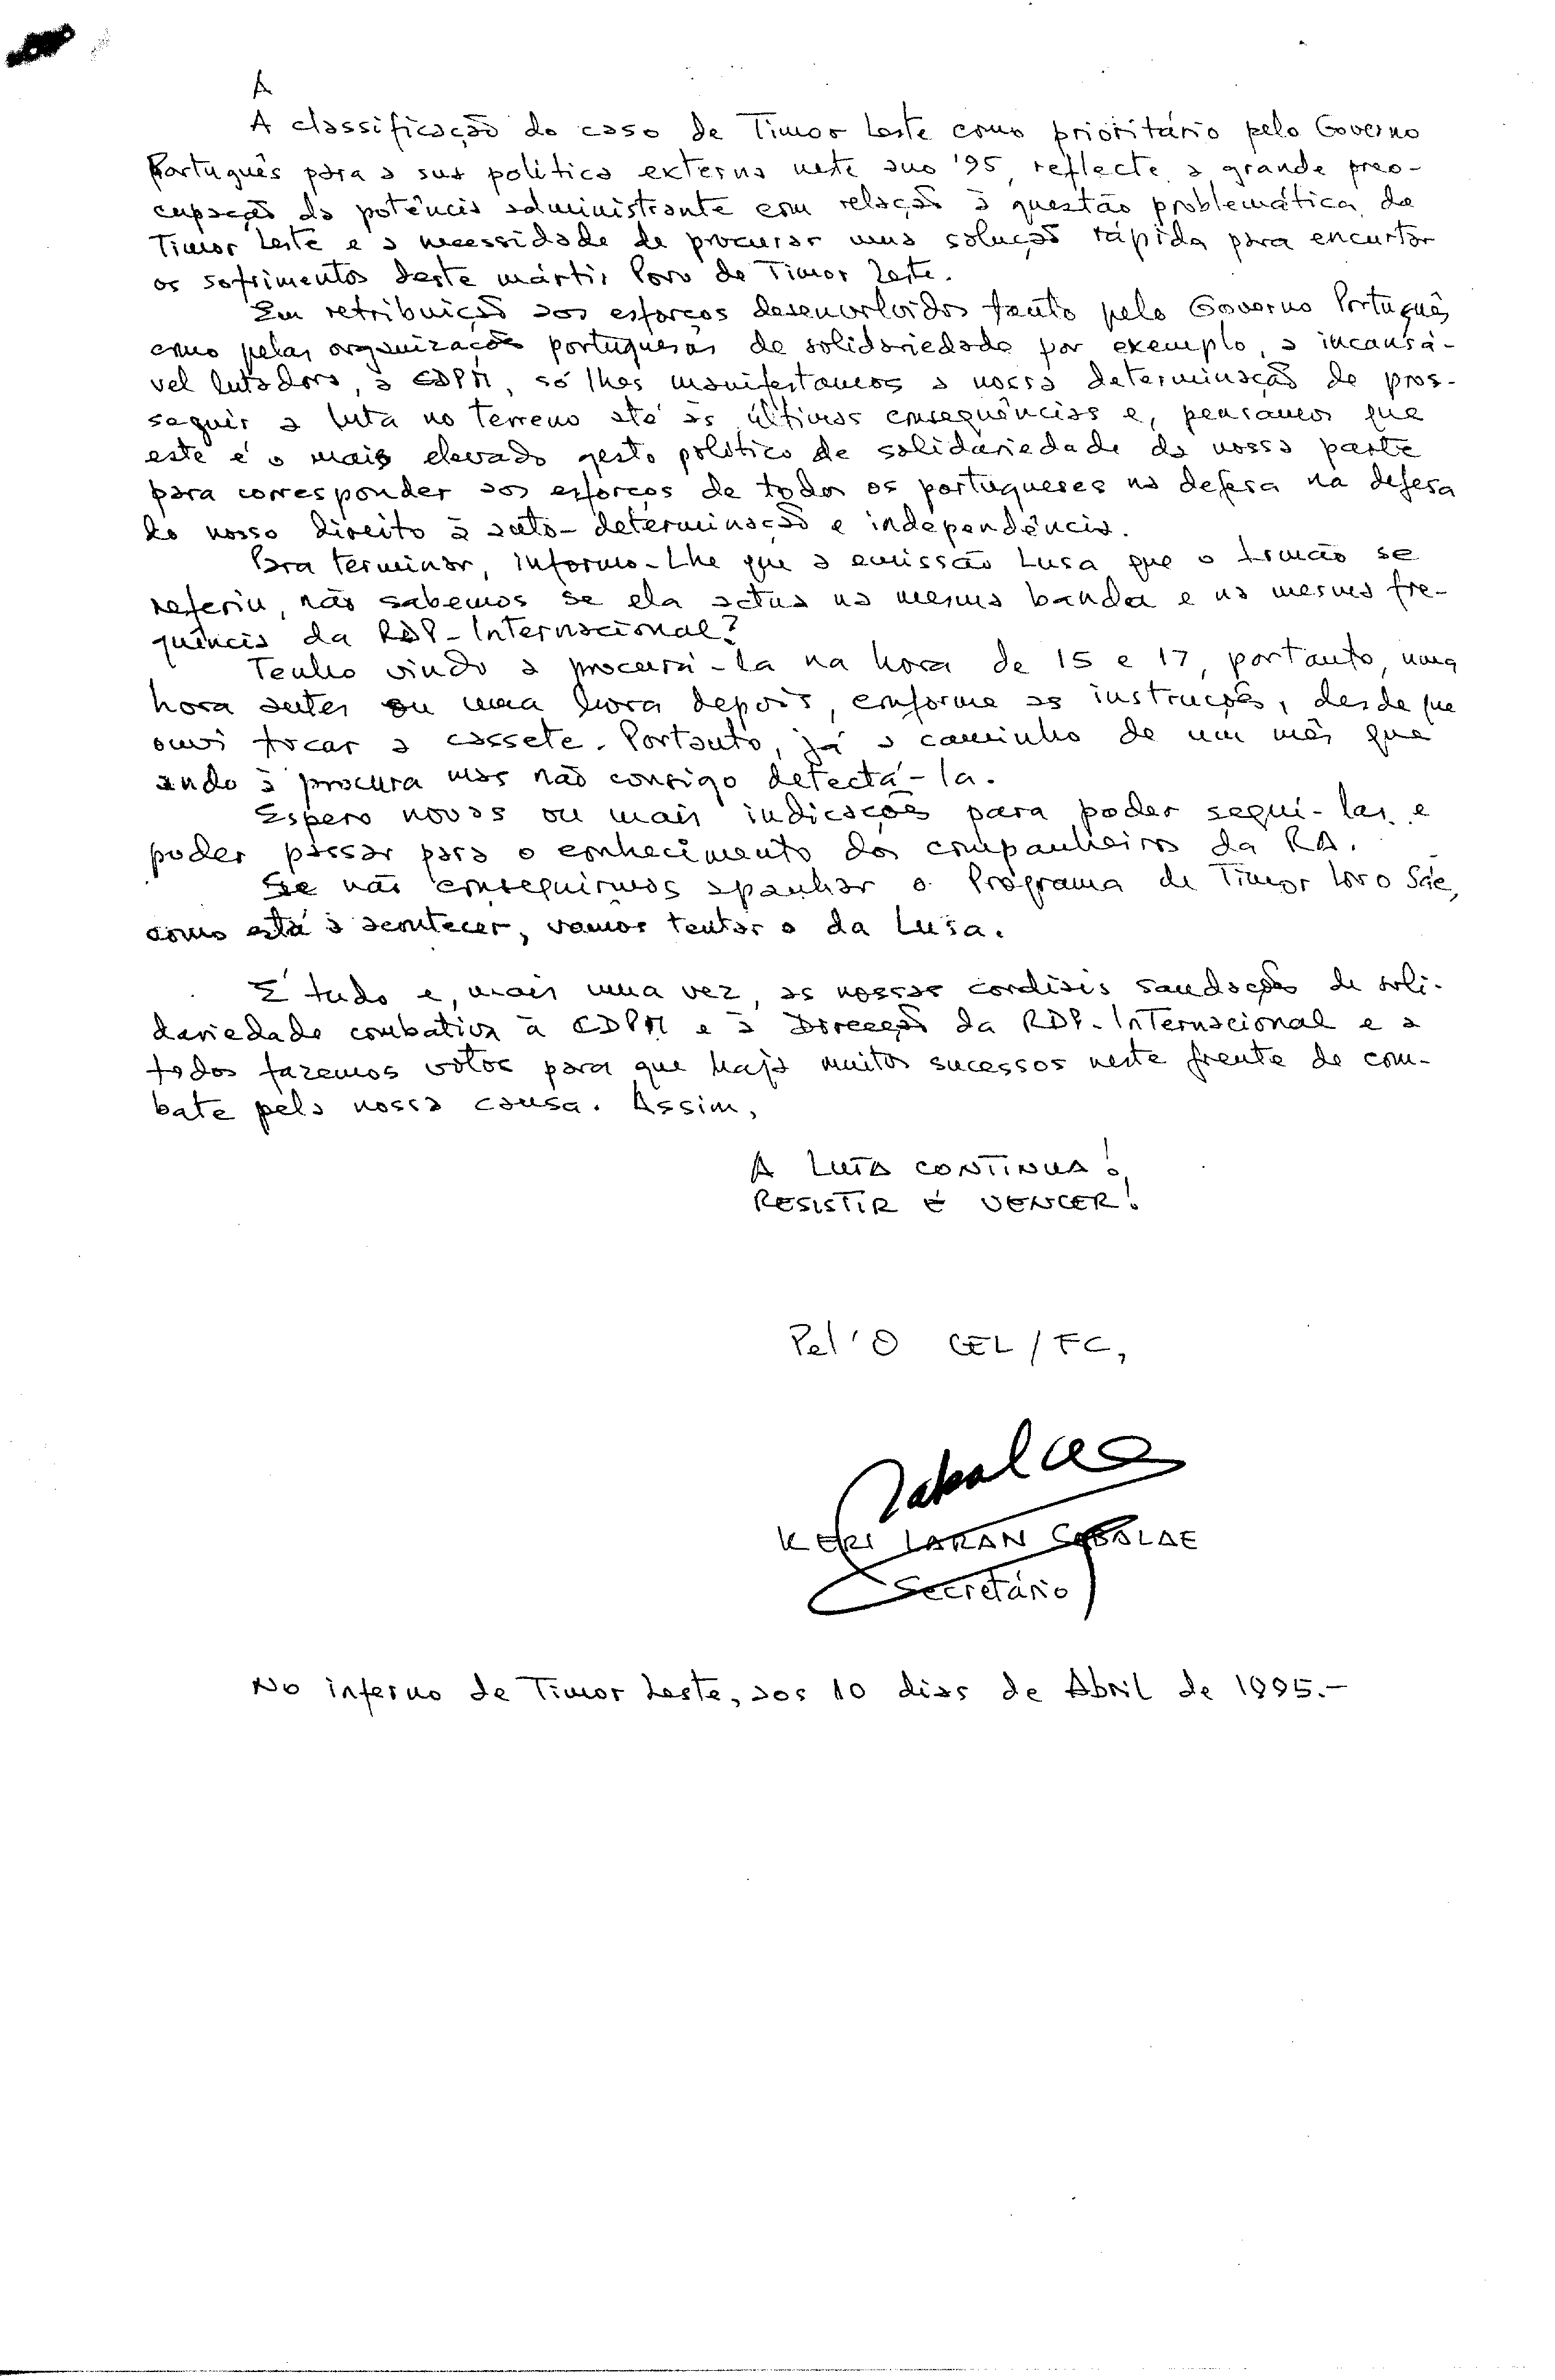 A
A classificação do caso de Timor Leste como prioritário pelo Governo
Português para a sua política externa neste ano '95, reflecte a grande preo-
cupação da potência administrante com relação à questão problemática de
Timor Leste e a necessidade de procurar uma solução rápida para encurtar
os sofrimentos deste mártir Povo de Timor Leste.
Em retribuição aos esforços desenvolvidos tanto pelo Governo Português
como pelas organizações portuguesas de solidariedade por exemplo, a incansá-
vel lutadora, a CDPM, só lhes manifestamos a nossa determinação de pros-
seguir a luta no terreno até às últimas consequências e, pensamos que
este é o mais elevado gesto político de solidariedade da nossa parte
para corresponder aos esforços de todos os portugueses na defesa na defesa
do nosso direito à auto-determinação e independência.
Para terminar, informo-Lhe que a emissão Lusa que o Irmão se
referiu, não sabemos se ela actua na mesma banda e na mesma fre-
quência da RDP-Internacional?
Tenho vindo a procurá-la na hora de 15 e 17, portanto, uma
hora antes ou uma hora depois, conforme as instruções, desde que
ouvi tocar a cassete. Portanto, já a caminho de um mês que
ando à procura mas não consigo detectá-la.
Espero novas ou mais indicações para poder seguí-las e
poder passar para o conhecimento dos companheiros da RA.
Se não conseguirmos apanhar o Programa de Timor Loro Sáe,
como está a acontecer, vamos tentar o da Lusa.
É tudo e, mais uma vez, as nossas cordiais saudações de soli-
dariedade combativa à CDPM e à Direcção da RDP-Internacional e a
todos fazemos votos para que haja muitos sucessos neste frente de com-
bate pela nossa causa. Assim,
A LUTA CONTINUA!
RESISTIR É VENCER!
Pel'O CEL/FC,
Sabalae
KERI LARAN SABALAE
Secretário
No inferno de Timor Leste, aos 10 dias de Abril de 1995.-